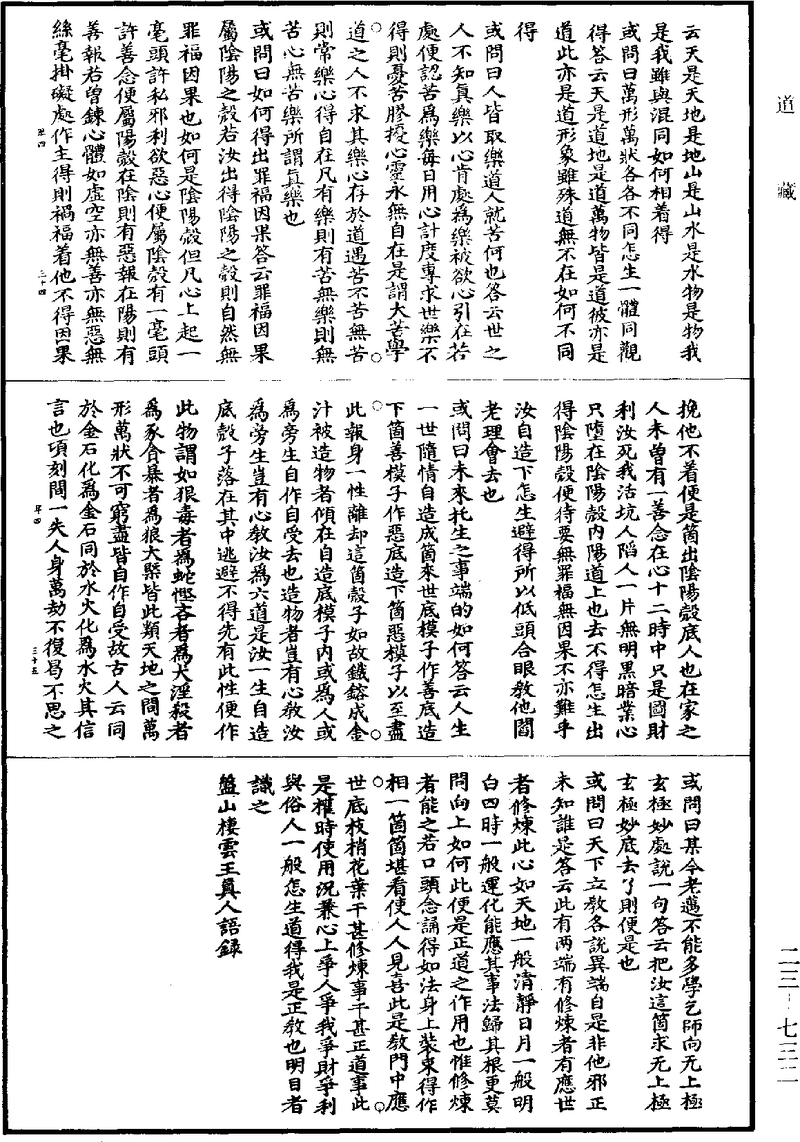 道藏
云天是天地是地山是山水是水物是物我
是我雖與混同如何相着得
或問曰萬形萬狀各各不同怎生一體同觀
得答云天是道地是道萬物皆是道彼亦是
道此亦是道形象雖殊道無不在如何不同
得
或問曰人皆取樂道人就苦何也答云世之
人不知真樂以心肯處為樂被欲心引在若
處便認苦為樂每日用心計度專求世樂不
得則憂苦膠擾心靈永無自在是謂大苦學
道之人不求其樂心存於道遇苦不苦無苦
則常樂心得自在凡有樂則有苦無樂則無
苦心無苦樂所謂真樂也
或問曰如何得出罪福因果答云罪福因果
屬陰陽之殼若汝出得陰陽之殼則自然無
罪福因果也如何是陰陽殼但凡心上起一
毫頭許私邪利欲惡心便屬陰殼有一毫頭
許善念便屬陽殼在陰則有惡報在陽則有
善報若曽鍊心體如虚空亦無善亦無惡無
絲毫掛礙處作主得則禍福着他不得因果
孕四
三十四
挽他不着便是箇出陰陽殼底人也在家之
人未曽有一善念在心十二時中只是圖財
利汝死我活坑人陷人一片無明黒暗業心
只墮在陰陽殼內陽道上也去不得怎生出
得陰陽殼便待要無罪福無因果不亦難乎
汝自造下怎生避得所以低頭合眼教他閻
老理會去也
或問曰未來托生之事端的如何答云人生
一世隨情自造成箇來世底模子作善底造
下箇善模子作惡底造下箇惡模子以至盡
此報身一性離却這箇殼子如故鐵鎔成金
汁被造物者傾在自造底模子內或為人或
為旁生自作自受去也造物者豈有心教汝
為旁生豈有心教汝為六道是汝一生自造
底殼子落在其中逃避不得先有此性便作
此物謂如狠毒者為蛇慳吝者為犬淫殺者
為豕貪暴者為狼大槩皆此類天地之間萬
形萬狀不可窮盡皆自作自受故古人云同
於金石化為金石同於水火化為水火其信
言也頃刻間一失人身萬劫不復曷不思之
孕四
三十五
或問曰某今老邁不能多學乞師向无上極
玄極妙處說一句答云把汝這箇求无上極
玄極妙底去了則便是也
或問曰天下立教各說異端自是非他邪正
未知誰是答云此有两端有修煉者有應世
者修煉此心如天地一般清靜日月一般明
白四時一般運化能應其事法歸其根更莫
問向上如何此便是正道之作用也惟修煉
者能之若口頭念誦得如法身上裝束得作
相一箇箇堪看使人人見喜此是教門中應
世底枝梢花葉干甚修煉事干甚正道事此
是權時使用況兼心上爭人爭我爭財爭利
與俗人一般怎生道得我是正教也明目者
識之
盤山棲雲王真人語録
二三-七三二